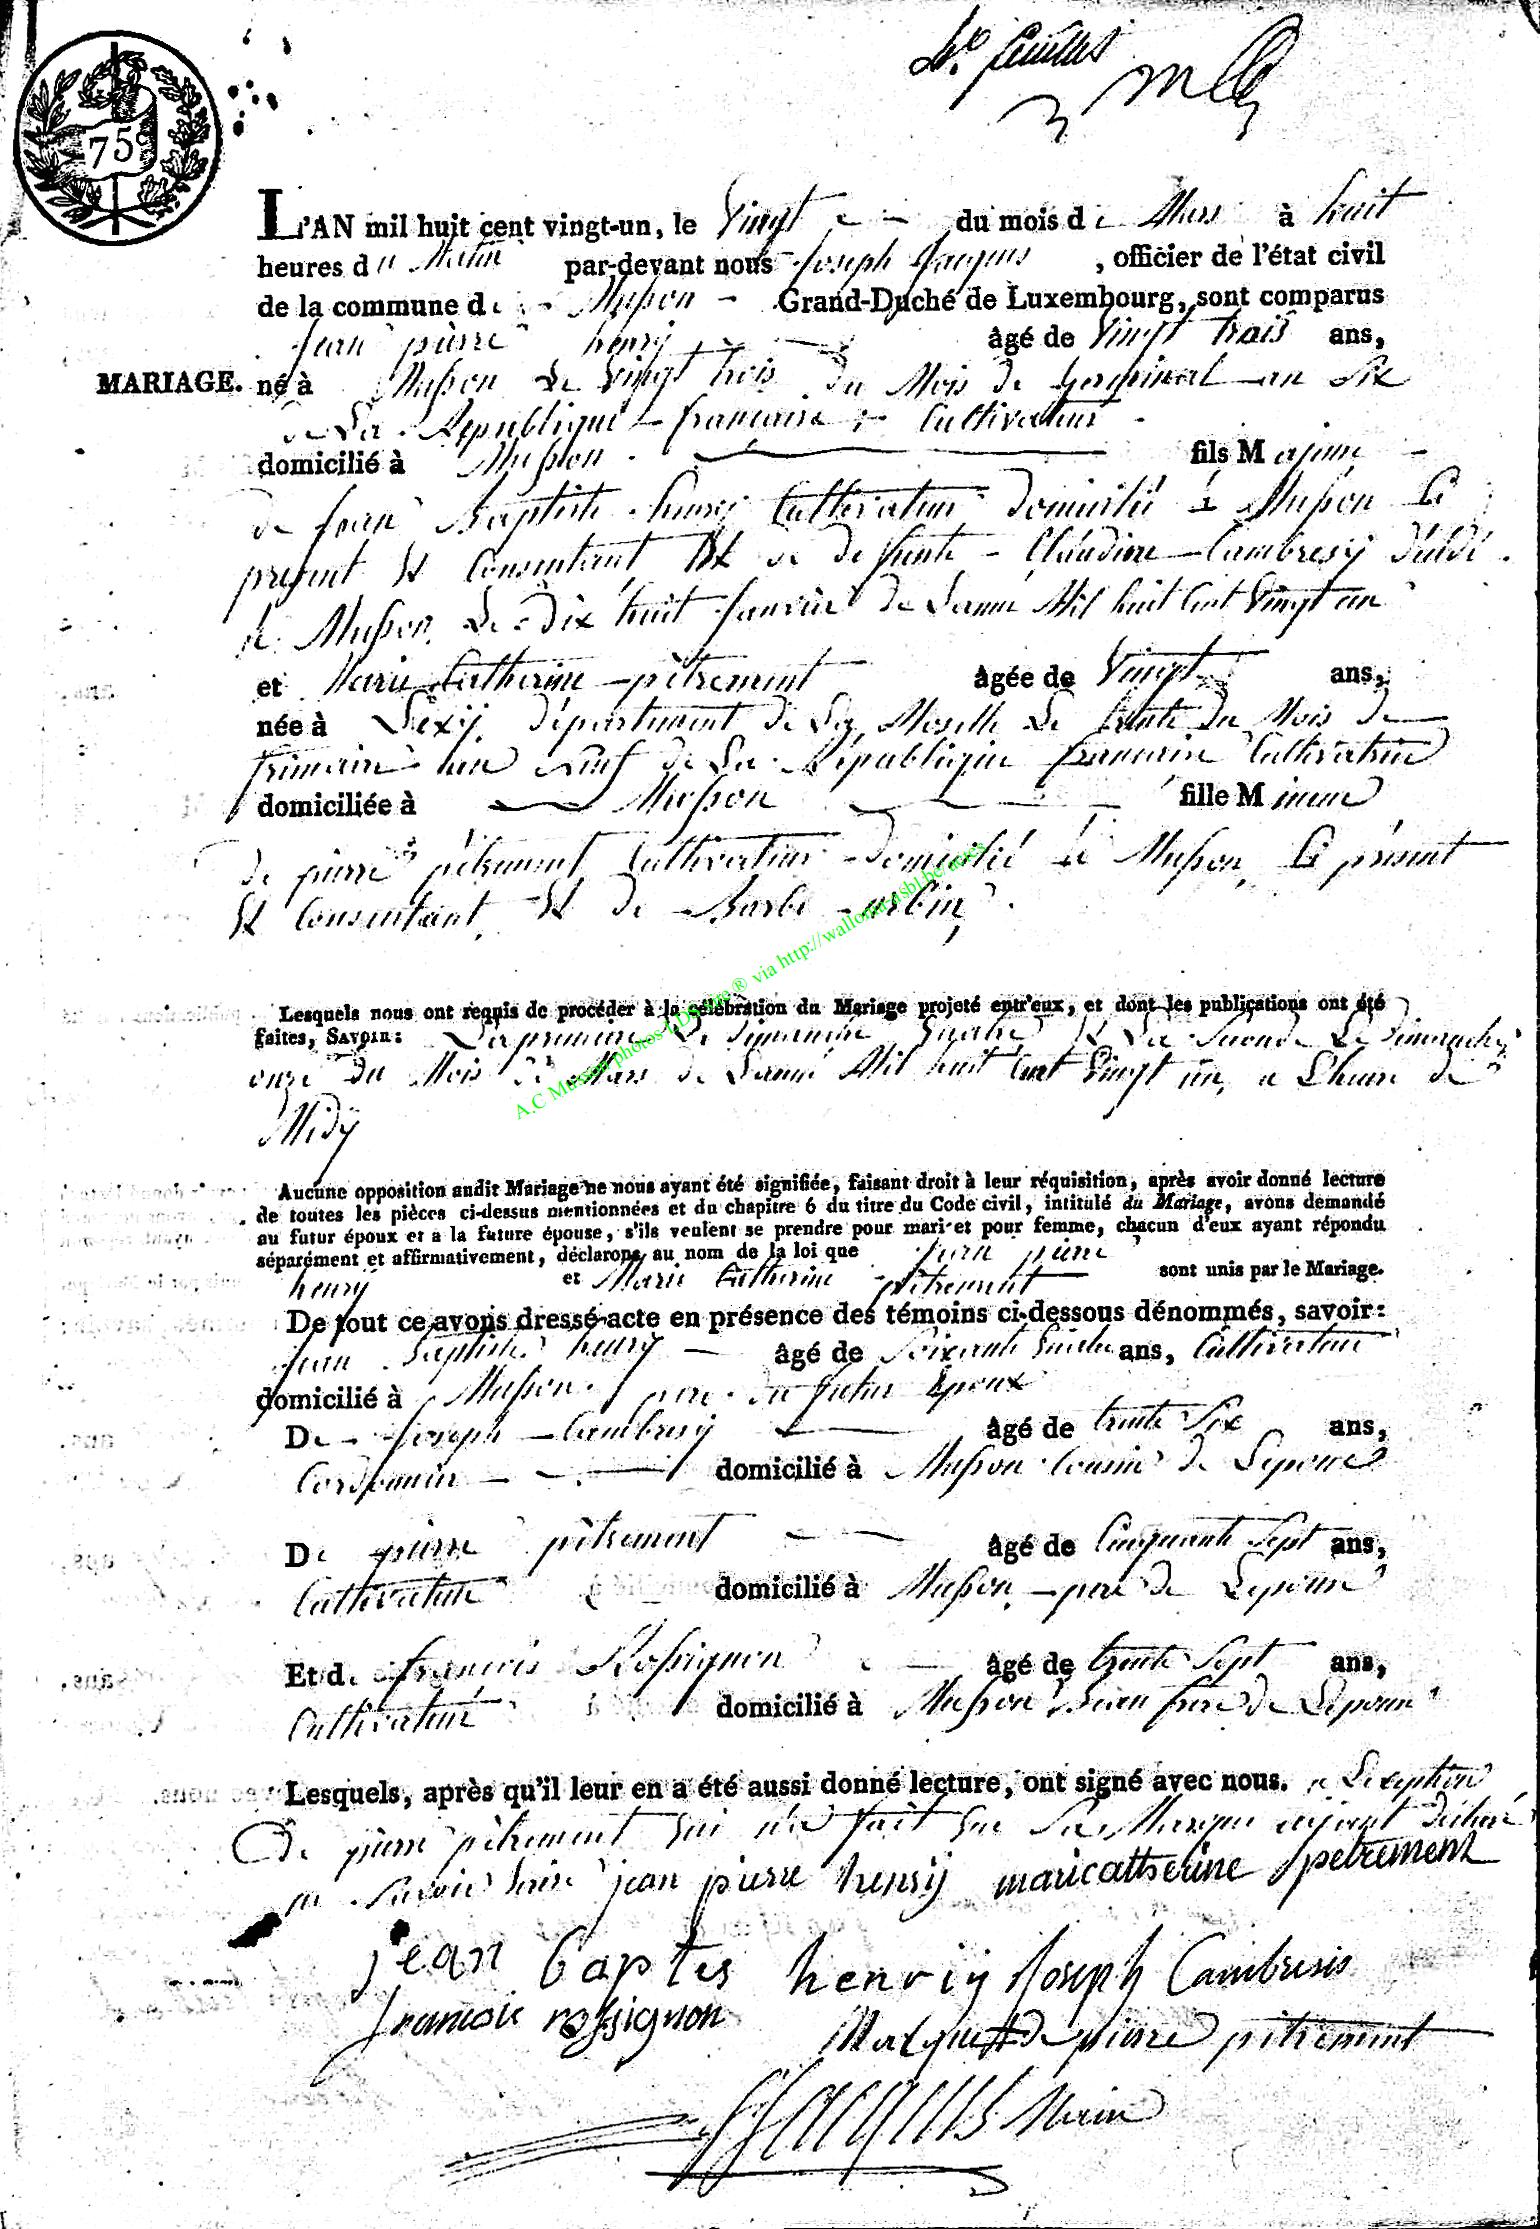 4e feuillet
75c
L'AN mil huit cent vingt-un, le Vingt du mois de Mars à huit
heures du Matin par-devant nous Joseph Jacques, officier de l'état civil
de la commune de Musson Grand-Duché de Luxembourg, sont comparus
Jean pierre henry âgé de Vingt trois ans,
MARIAGE. né à Musson Le Vingt trois du Mois de Germinal an Six
de La République francaise Cultivateur
domicilié à Musson fils Majeur
de Jean Baptiste henry Cultivateur domicilié à Musson Ci
present Et Consentant Et de defunte Claudine Cambresy décédé
à Musson Le dix huit Janvier de Lanné Mil huit Cent Vingt un
et Marie Catherine pètrement âgée de Vingt ans,
née à Lexÿ département de La Moselle Le trente du Mois de
frimaire an neuf de La République francaise Cultivatrice
domiciliée à Musson fille Mineure
de pierre pètrement Cultivateur domicilié à Musson, Ci présent
Et Consentant, Et de Barbe urbin,
Lesquels nous ont requis de procéder à la célébration du Mariage projeté entr'eux, et dont les publications ont été
faites, SAVOIR: La premiere Le dimanche quatre Et La Seconde Le dimanche
onze du Mois de Mars de Lanné Mil huit Cent Vingt un, a Lheure de
Midÿ
Aucune opposition audit Mariage ne nous ayant été signifiée, faisant droit à leur réquisition, après avoir donné lecture
de toutes les pièces ci-dessus mentionnées et du chapitre 6 du titre du Code civil, intitulé du Mariage, avons demandé
au futur époux et a la future épouse, s'ils veulent se prendre pour mari et pour femme, chacun d'eux ayant répondu
séparément et affirmativement, déclarons au nom de la loi que Jean pierre
henrÿ et Marie Catherine pètrement sont unis par le Mariage.
De tout ce avons dressé acte en présence des témoins ci-dessous dénommés, savoir:
Jean Baptiste henry âgé de Soixante quatre ans, Cultivateur
domicilié à Musson pere du futur Epoux
De Joseph Cambresÿ âgé de trente Six ans,
Cordonnier domicilié à Musson Cousin de Lepoux
De pierre pètrement âgé de Cinquante Sept ans,
Cultivateur domicilié à Musson pere de Lepouse
Et de francois Rossignon âgé de trente Sept ans,
Cultivateur domicilié à Musson Beau frere de Lepouse
Lesquels, après qu'il leur en a été aussi donné lecture, ont signé avec nous. a Lexeption
De pierre pètrement qui n'a fait que Sa Marque ayant déclaré
ne Savoir Ecrire jean pierre henrÿ maricattherine petrement
jean baptes henrÿ Joseph Cambresis
francoic rossignon Marque de pierre pètrement
J Jacques Maire
A.C Musson photos LDS via http://wallonia-asbl.be/actes